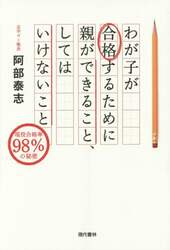 わが子が
合格するために
親ができること、
しては
いけないこと
阿部泰志
現役合格率
98%
の秘密
現代書林